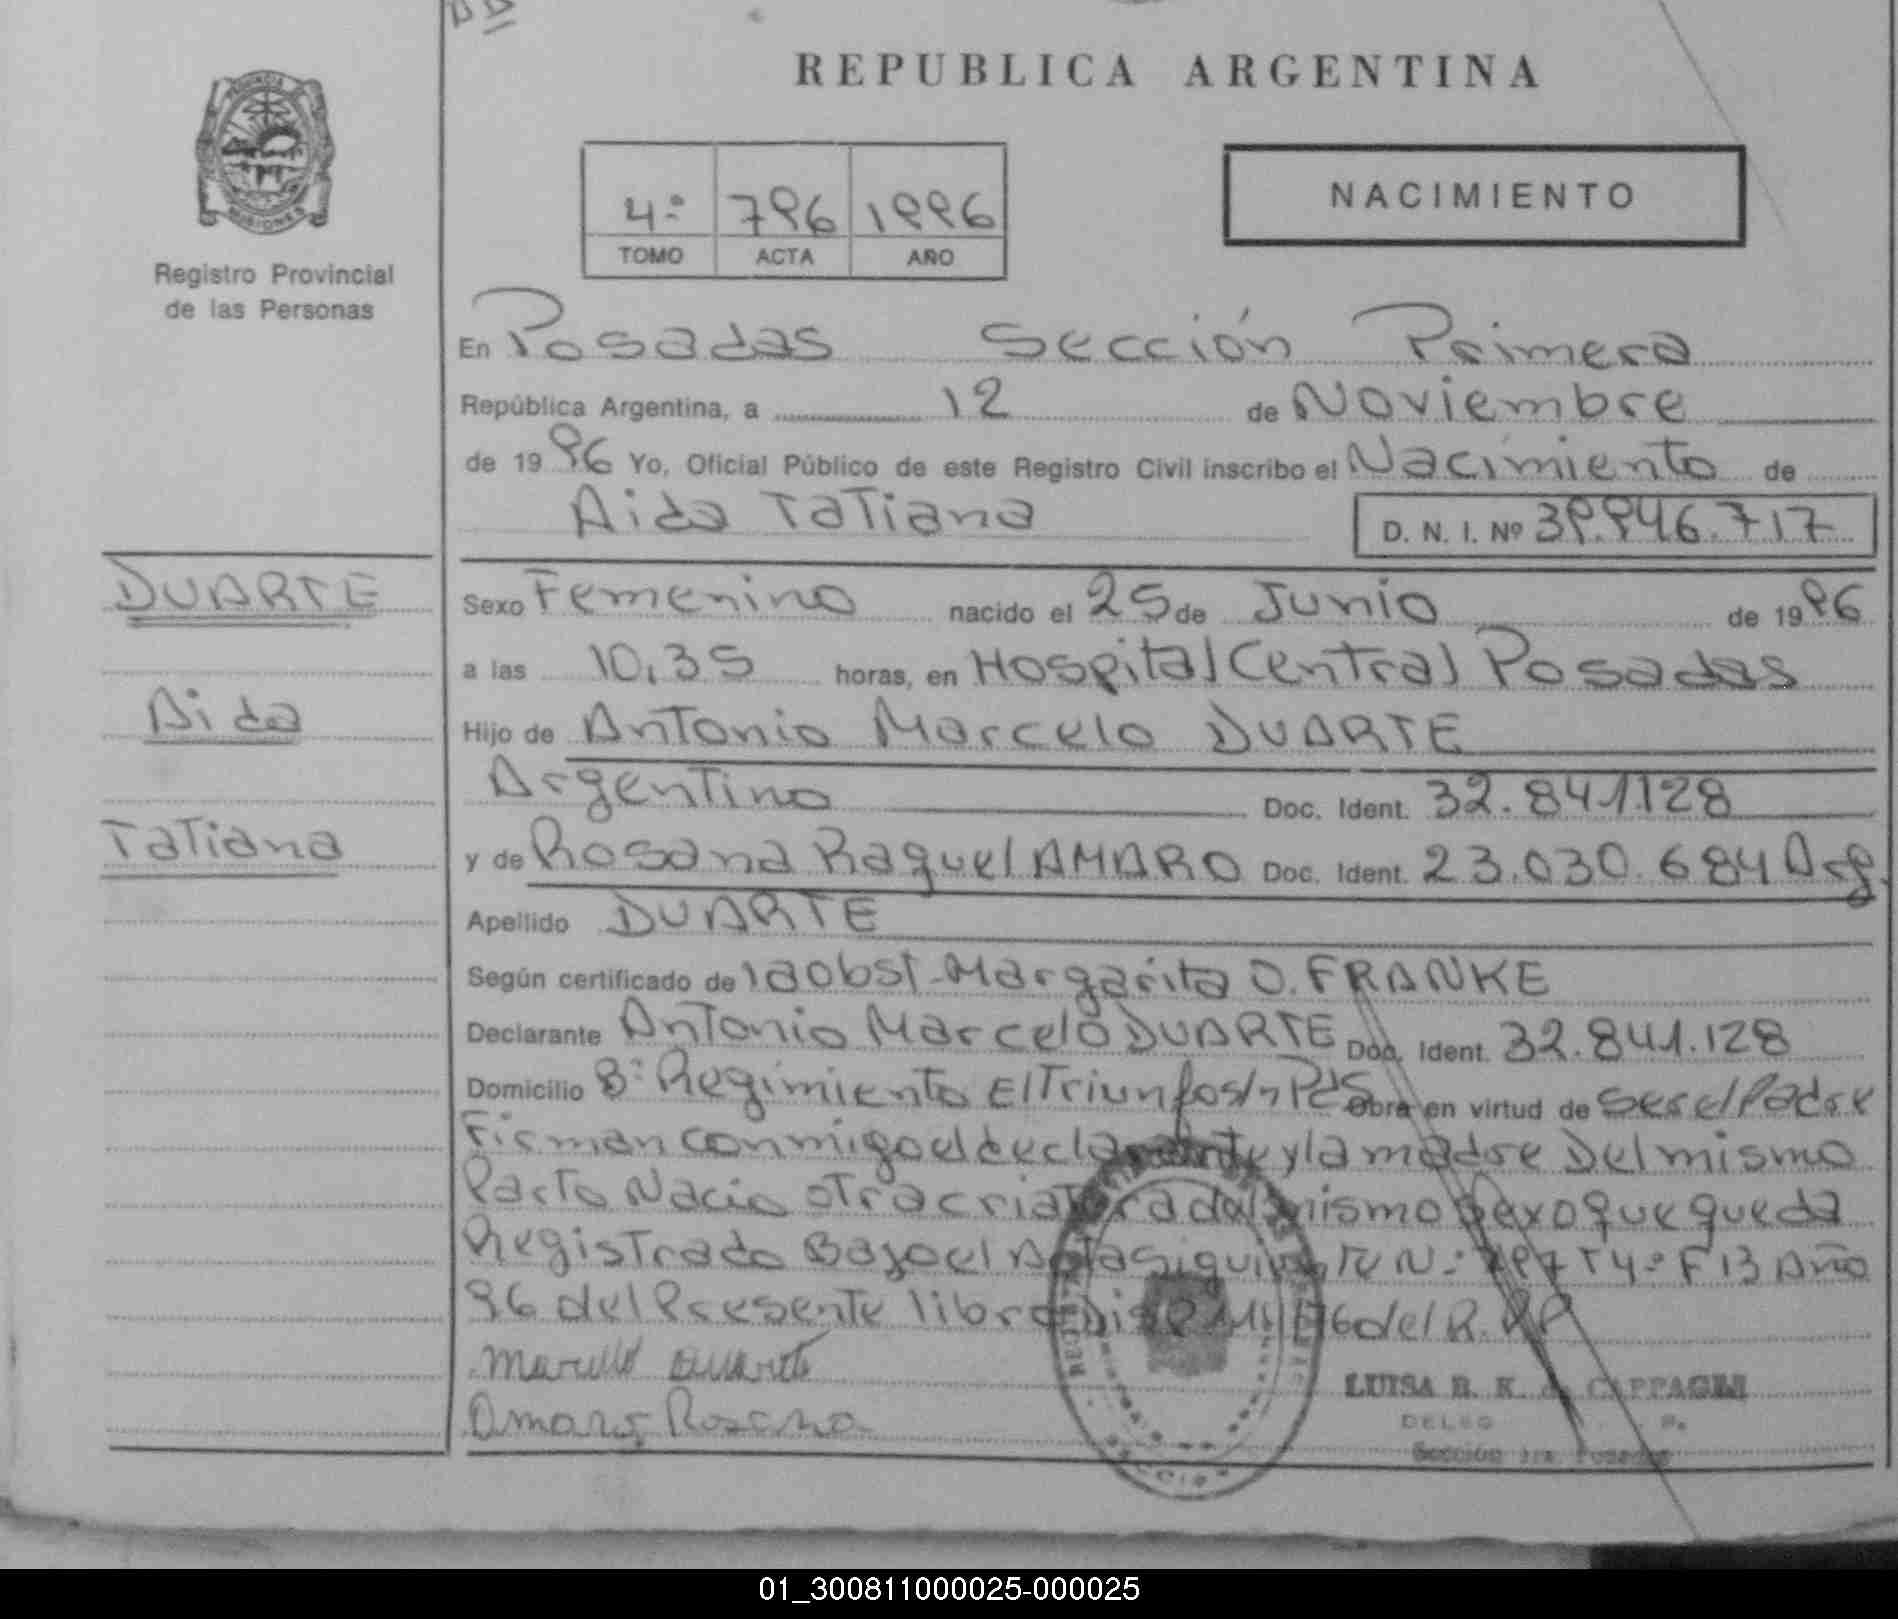 REPUBLICA ARGENTINA
PROVINCIA
MISIONES
Registro Provincial
de las Personas
4º 796 1996
TOMO ACTA AÑO
NACIMIENTO
En Posadas Sección Primera
República Argentina, a 12 de Noviembre
de 1996 Yo, Oficial Público de este Registro Civil inscribo el Nacimiento de
Aida Tatiana D. N. I. Nº 39.946.717
DUARTE
Aida
Tatiana
Sexo Femenino nacido el 25 de Junio de 1996
a las 10,35 horas, en Hospital Central Posadas
Hijo de Antonio Marcelo DUARTE
Argentino Doc. Ident. 32.841.128
y de Rosana Raquel AMARO Doc. Ident. 23.030.684 Arg.
Apellido DUARTE
Según certificado de la Obst. Margarita O. FRANKE
Declarante Antonio Marcelo DUARTE Doc. Ident. 32.841.128
Domicilio Bº Regimiento El Triunfo s/n Pdas Obra en virtud de ser el Padre
Firman conmigo el declarante y la madre Del mismo
Parto Nacio otra criatura del mismo sexo que queda
Registrado Bajo el Acta siguiente Nº 797 Tº 4º F 13 Año
96 del Presente libro Disp. del R.P.P
Marcelo Duarte
Amaro, Rosana
LUISA R. K. de CAPPAGLI
DELEG
Sección 1ra. Posadas
01_300811000025-000025